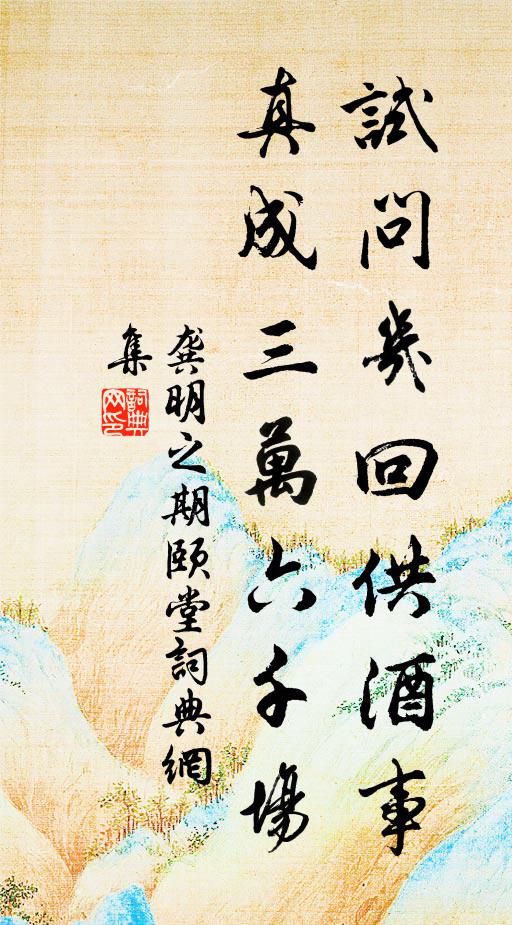 試問幾回供酒事
真成三萬六千場
龔明之期頤堂詞典網
集
詞典網印